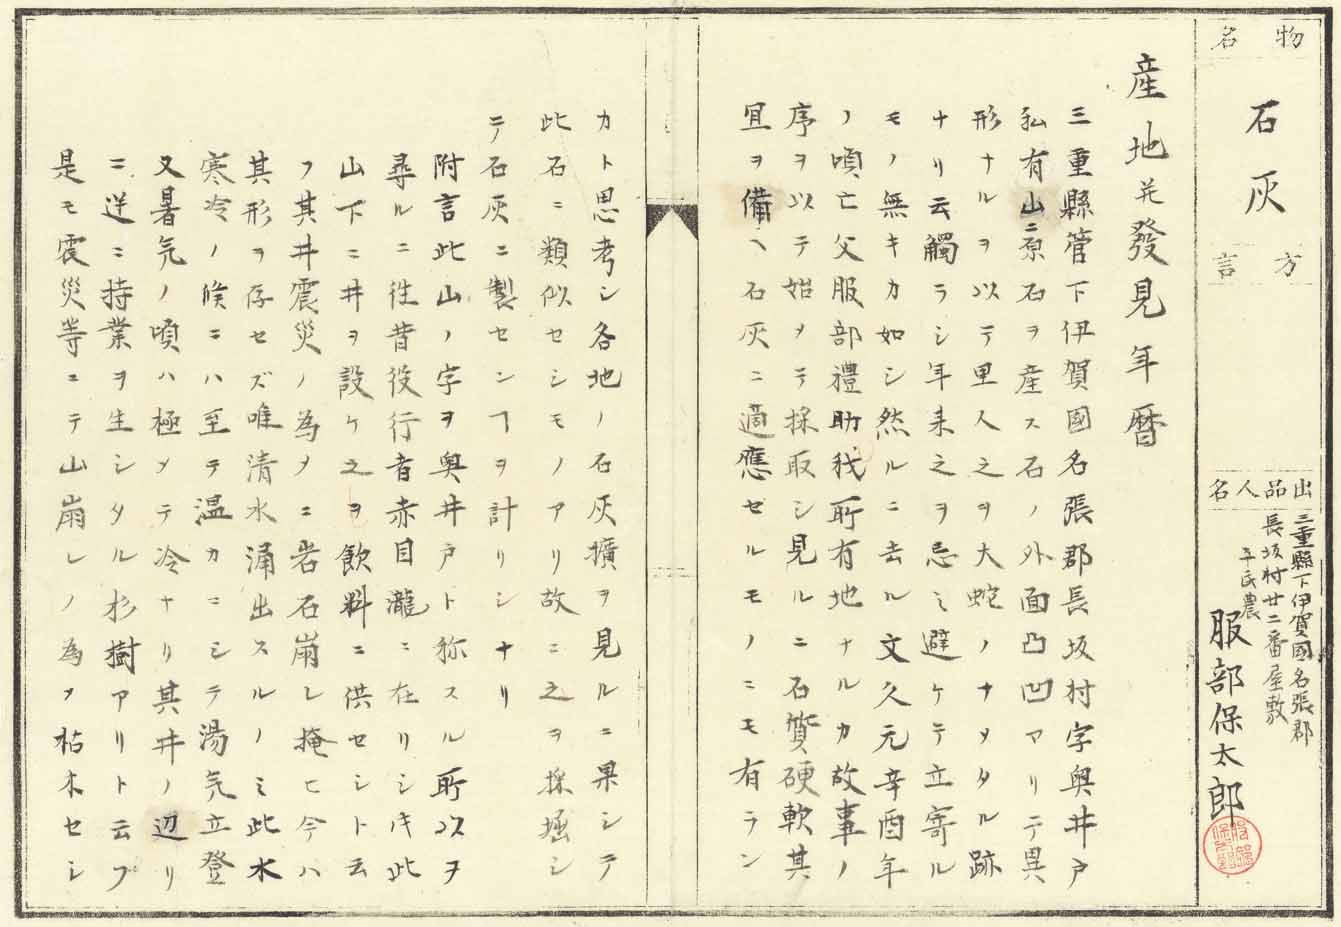 物名
石灰
方言
出品人名
三重縣下伊賀國名張郡
長坂村廿二番屋敷
平民農
服部保太郎
産地並發見年暦
三重縣管下伊賀國名張郡長坂村字奥井戸
私有山ニ原石ヲ産ス石ノ外面凸凹アリテ異
形ナルヲ以テ里人之ヲ大蛇ノナメタル跡
ナリ云觸ラシ年来之ヲ忌ミ避ケテ立寄ル
モノ無キカ如シ然ルニ去ル文久元辛酉年
ノ頃亡父服部禮助我所有地ナルカ故事ノ
序ヲ以テ始メテ採取シ見ルニ石質硬軟其
宜ヲ備ヘ石灰ニ適應セルモノニモ有ラン
カト思考シ各地ノ石灰擴ヲ見ルニ果シテ
此石ニ類似セシモノアリ故ニ之ヲ採堀シ
テ石灰ニ製センヿヲ計リシナリ
附言此山ノ字ヲ奥井戸ト称スル所以ヲ
尋ルニ往昔役行者赤目瀧ニ在リシキ此
山下ニ井ヲ設ケ之ヲ飲料ニ供セシト云
フ其井震災ノ為メニ岩石崩レ掩ヒ今ハ
其形ヲ存セズ唯清水涌出スルノミ此水
寒冷ノ候ニハ至テ温カニシテ湯気立登
又暑気ノ頃ハ極メテ冷ナリ其井ノ辺リ
ニ逆ニ持業ヲ生シタル杉樹アリト云フ
是モ震災等ニテ山崩レノ為ヲ枯木セシ